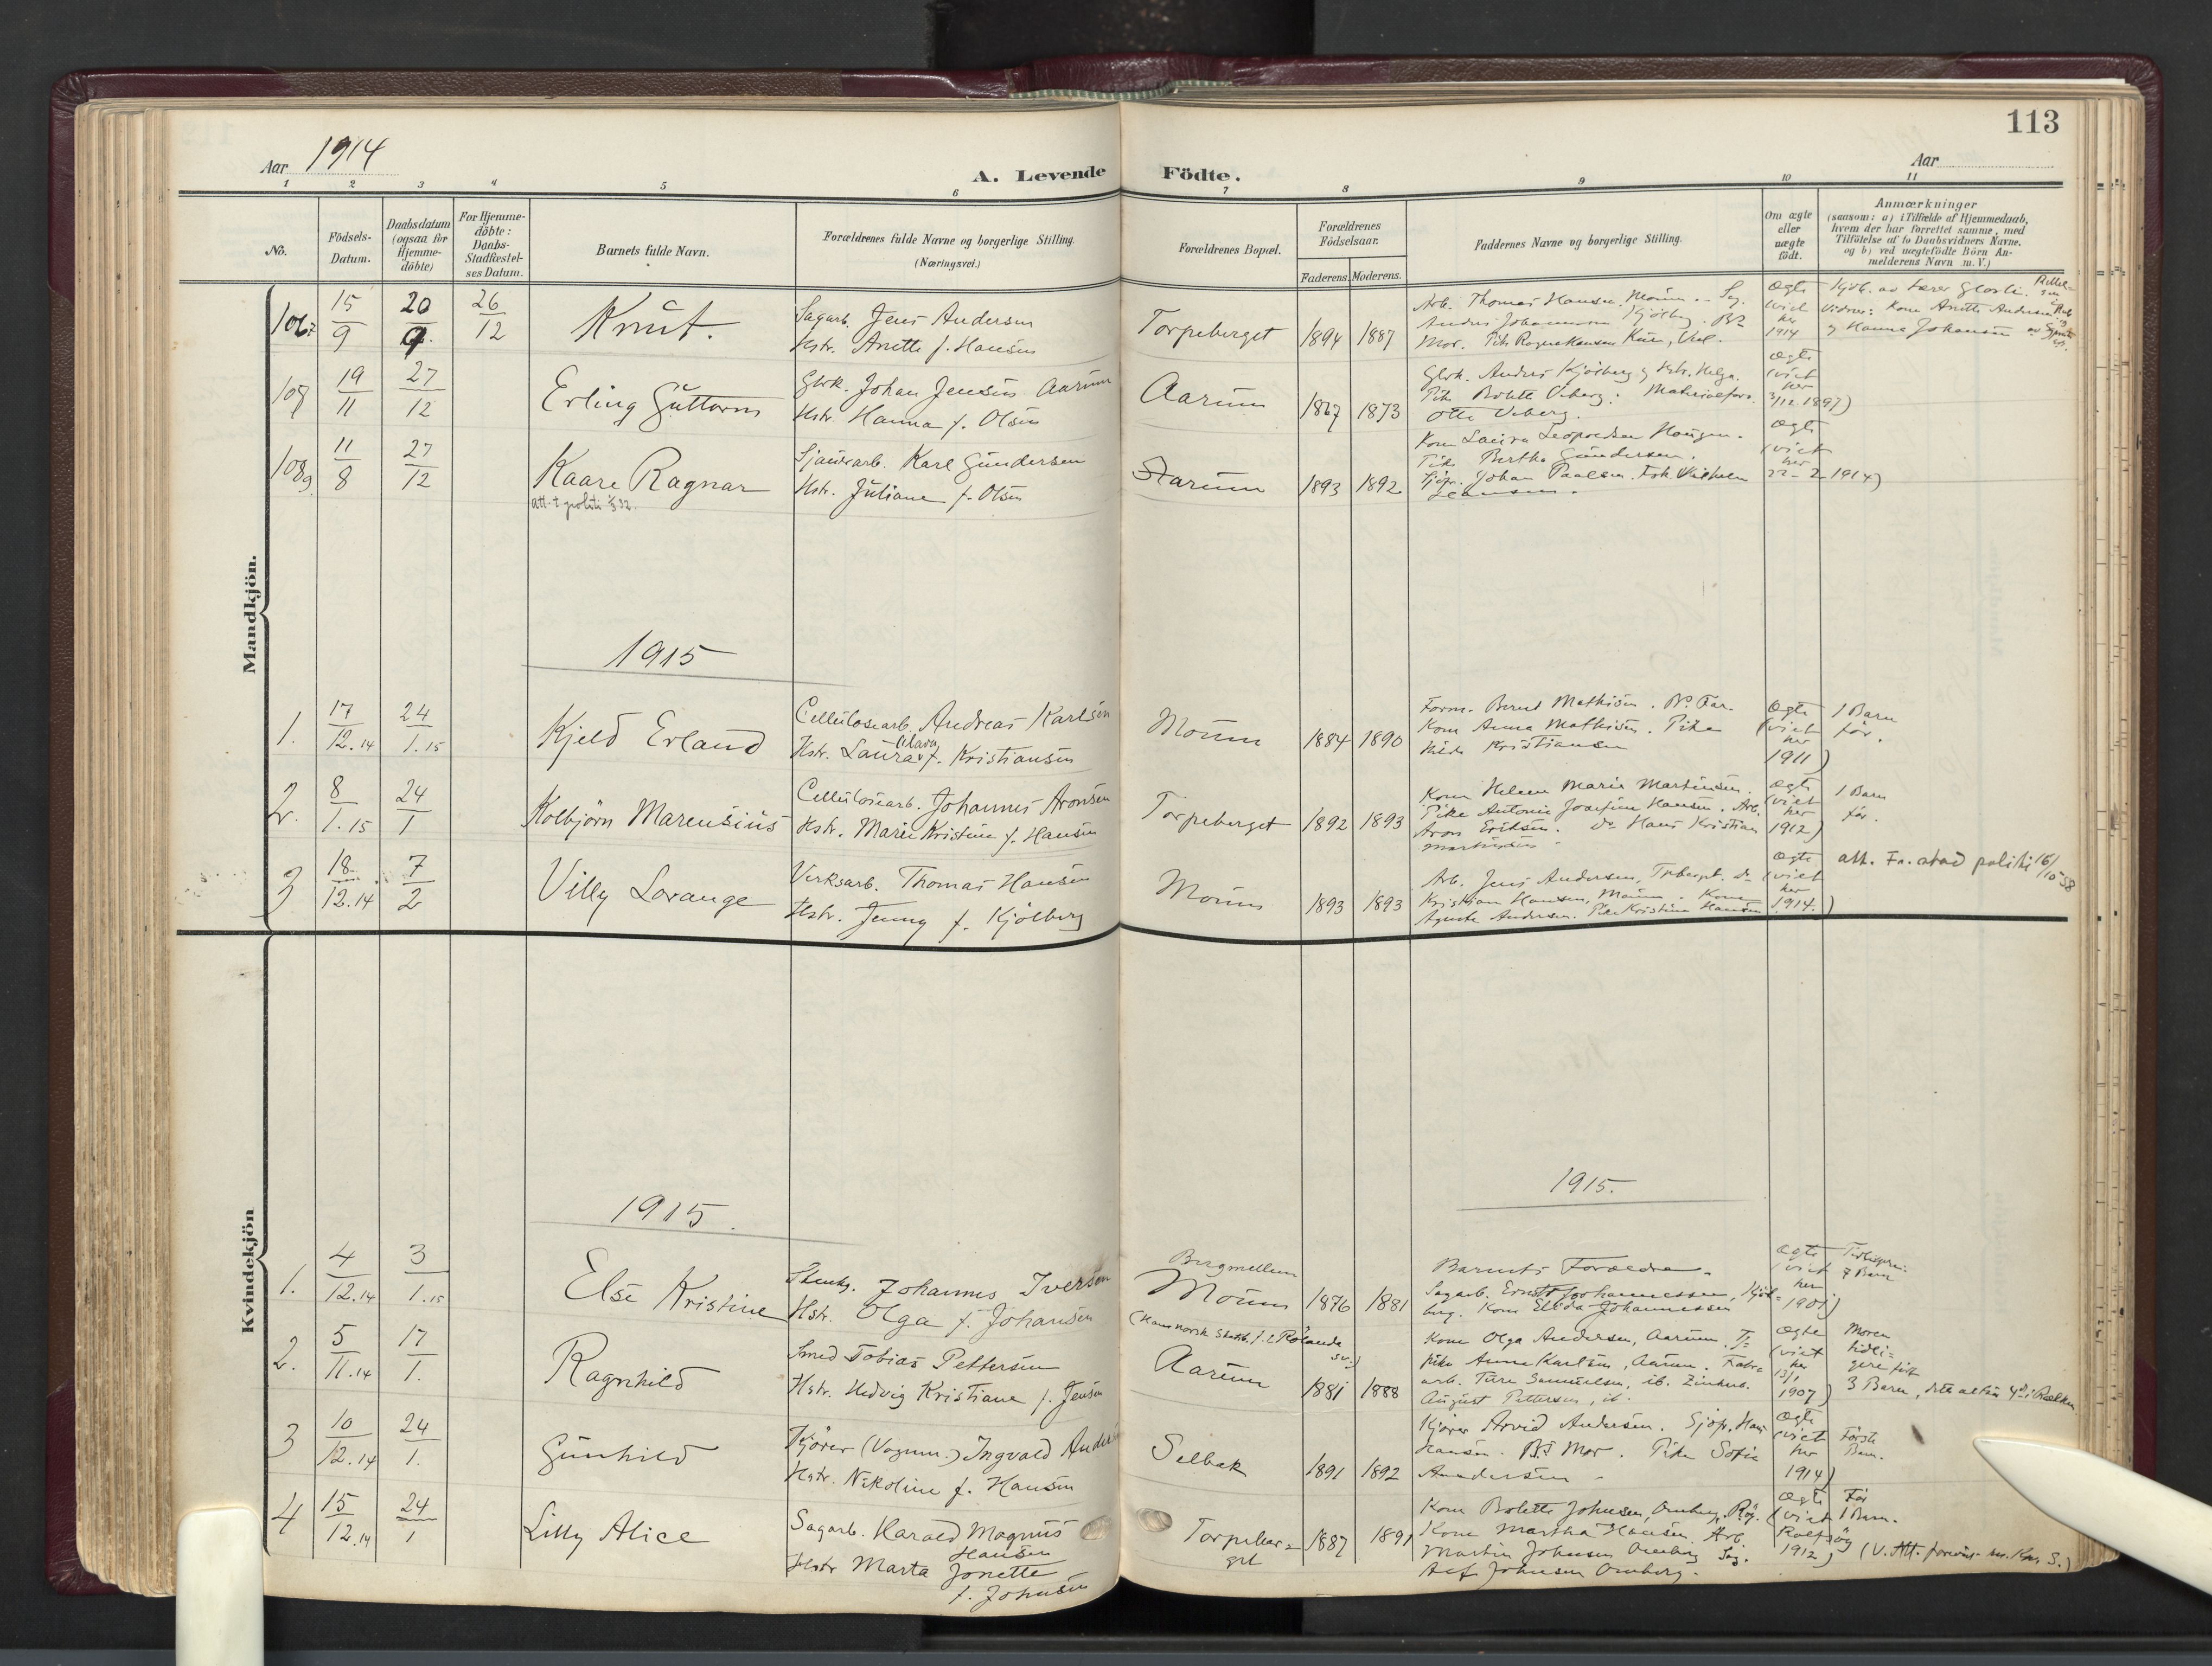 113
Aar 1914
A. Levende Födte.
Aar
1 2 3 4 5 6 7 8 9 10 11
No.
Födsels-Datum.
Daabsdatum (ogsaa for Hjemme-döbte)
For Hjemme-döbte: Daabs-Stadfæstel-ses Datum.
Barnets fulde Navn.
Forældrenes fulde Navne og borgerlige Stilling. (Næringsvei.)
Forældrenes Bopæl.
Forældrenes Födselsaar.
Faderens. Moderens.
Faddernes Navne og borgerlige Stilling.
Om ægte eller uægte födt.
Anmærkninger
(saasom: a) i Tilfælde af Hjemmedaab,
hvem der har forrettet samme, med
Tilföielse af to Daabsvidners Navne.
og b) ved uægtefödte Börn An-
melderens Navn m. V.)
Mandkjön.
15/9 20/9 26/12 Knut.
Sagarb. Jens Andersen
Hstr. Anette f. Hansen
Torpeberget 1894 1887
Arb. Thomas Hansen, Moum. Sag.
Andreas Johannesen Kjölberg. Bs
Mor. Pike Ragna Hansen
Ægte (viet her 1914
Hjdb. av Lærer Glosli.
Vidner: Kone Anette Andersen
og Hanna Johansen
19/11 27/12 Erling Guttorm
Gbrk. Johan Jensen Aarum
Hstr. Hanna f. Olsen
Aarum 1867 1873
Gbrk. Andreas Kjölberg og Hstr. Helga.
Pike Bolette Viberg. Materialforv.
Otto Viberg.
Ægte (viet her 3/12 1897)
11/8 27/12 Kaare Ragnar
Sjauerarb. Karl Gundersen
Hstr. Juliane f. Olsen
Aarum 1893 1892
Kone Laura Leopoldsen Haugen.
Pike Bertha Gundersen.
Sjöm. Johan Paulsen. Fbk. Wilhelm
Ægte (viet her 22-2 1914)
1915
1. 17/12.14 24/1.15 Kjeld Erland
Cellulosearb. Andreas Karlsen
Hstr. Laura Clara f. Kristiansen
Moum 1884 1890
Form. Bernt Mathisen. Bs. Far.
Kone Anna Mathisen. Pike
Hilda Kristiansen
Ægte (viet her 1911)
1 Barn för.
2. 8/1.15 24/1 Kolbjörn Marensius
Cellulosearb. Johannes Aronsen
Hstr. Marie Kristine f. Hansen
Torpeberget 1892 1893
Kone Helene Marie Martinsen.
Pike Antonie Josefine Hansen. Arb.
Aron Eriksen. Do Hans Kristian
Martinsen.
Ægte (viet her 1912)
1 Barn för.
3 18/12.14 7/2 Villy Lorange
Verksarb. Thomas Hansen
Hstr. Jenny f. Kjölberg
Moum 1893 1893
Arb. Jens Andersen, Tpberget. Do
Kristian Hansen, Moum. Kone
Agnete Andersen. Pike Kristine Hansen
Ægte (viet her 1914.)
att. Fr.stad politi 16/10 58
Kvindekjön
1915.
1915.
1. 4/12.14 3/1.15 Else Kristine
Stenhg. Johannes Iversen
Hstr. Olga f. Johansen
Bergmellem
Moum 1876 1881
Barnets Forældre.
Sagarb. Ernst Johannessen, Kjöl-
berg. Kone Elida Johannessen
Ægte (viet her 1901)
Tidligere: 7 Barn
2. 5/11.14 17/1. Ragnhild
Smed Tobias Pettersen
Hstr. Hedvig Kristiane f. Jensen
Aarum 1881 1888
Kone Olga Andersen, Aarum.
Pike Anna Karlsen, Aarum. Fabr=
arb. Ture Samuelsen, ib. Zinkarb.
August Pettersen, ib.
Ægte (viet her 13/1 1907)
Moren tidli=
gere födt
3 Barn, dette altsaa 4de i Rækken.
3 10/12.14 24/1. Gunhild
Kjörer (Vognm.) Ingvald Andersen
Hstr. Nikoline f. Hansen
Selbak 1891 1892
Kjörer Arvid Andersen. Sjöm. Hans
Hansen. Bs. Mor. Pike Sofie
Andersen
Ægte (viet her 1914)
Förste Barn.
4 15/12.14 24/1 Lilly Alice
Sagarb. Harald Magnus
Hansen
Hstr Marta Jonette
f. Johnsen
Torpeber=
get 1887 1891
Kone Bolette Johnsen, Omberg, Rög.
Kone Martha Hansen. Arb.
Martin Johnsen Omberg Sag.
Alf Johnsen Omberg.
Ægte (viet Rolfsöy 1912)
För 1 Barn.